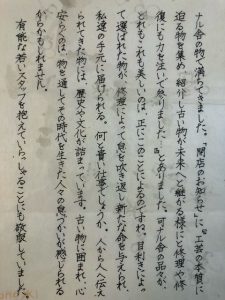 ナル舎の物で満ちてきました。「開店のお知らせ」に、"工芸の本質に
迫る物を集め紹介し古い物が未来へと継がる様にと修理や修
復にも力を注いで参ります"とありまして、可ナル舎の品々が、
どれもこれも美しいのは、正にこのことによるのですね。目利きによっ
て選ばれた物が、修理によって息を吹き返し新たな命を与えられ、
私達の手元に届けられる。何と貴い仕事でしょうか。人から人へ伝え
られてきた物には、歴史や文化が詰まっています。古い物に囲まれ、心
安らぐのは、物を通してその時代を生きた人々の息づかいが感じられる
からかもしれません。
有能な若いスタッフを抱えていらっしゃることにも敬服していまし